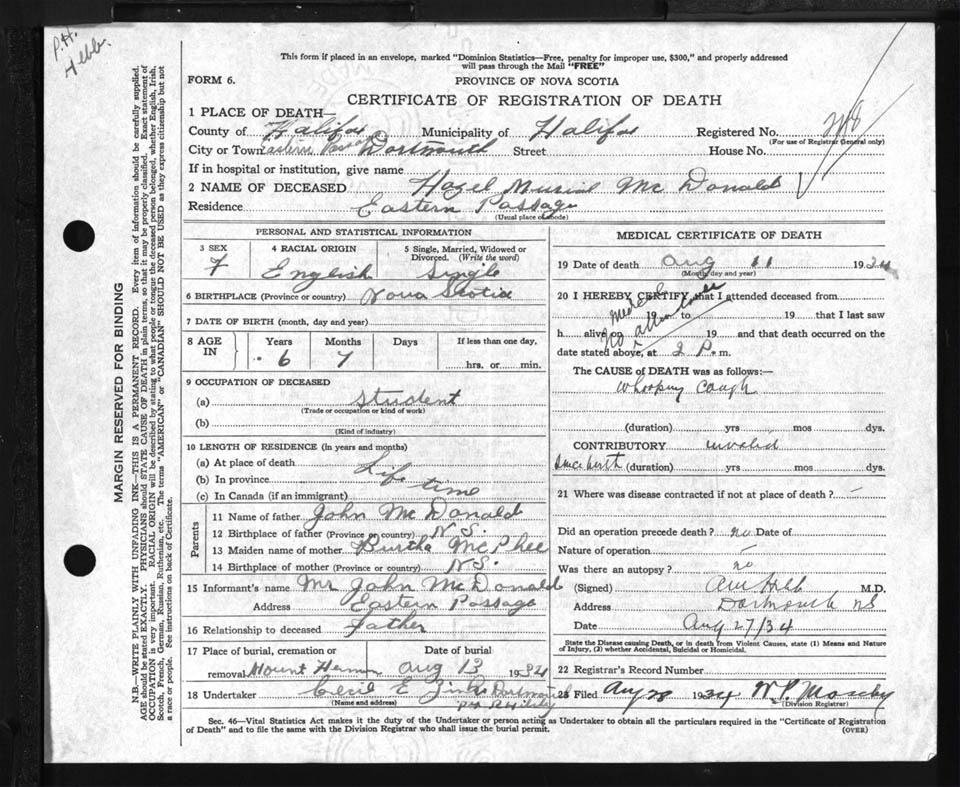 P.H.
Hebb.
This form if placed in an envelope, marked "Dominion Statistics—Free, penalty for improper use, $300," and properly addressed
will pass through the Mail "FREE"
FORM 6.
PROVINCE OF NOVA SCOTIA
CERTIFICATE OF REGISTRATION OF DEATH
1 PLACE OF DEATH—
County of Halifax Municipality of Halifax Registered No.
(For use of Registrar General only)
City or Town Eastern Passage Dartmouth Street House No.
If in hospital or institution, give name
2 NAME OF DECEASED Hazel Muriel Mc Donald
Residence Eastern Passage
(Usual place of abode)
PERSONAL AND STATISTICAL INFORMATION
3 SEX 4 RACIAL ORIGIN 5 Single, Married, Widowed or
Divorced. (Write the word)
F English Single
6 BIRTHPLACE (Province or country) Nova Scotia
7 DATE OF BIRTH (month, day and year)
8 AGE IN Years Months Days If less than one day,
6 7 hrs. or min.
9 OCCUPATION OF DECEASED
(a) Student
(Trade or occupation or kind of work)
(b)
(Kind of industry)
10 LENGTH OF RESIDENCE (in years and months)
(a) At place of death
(b) In province Life time
(c) In Canada (if an immigrant)
Parents
11 Name of father John Mc Donald
12 Birthplace of father (Province or country) N.S.
13 Maiden name of mother Burtha McPhee
14 Birthplace of mother (Province or country) N.S.
15 Informant's name Mr John McDonald
Address Eastern Passage
16 Relationship to deceased Father
17 Place of burial, cremation or Date of burial
removal Mount Hermon Aug 13 1934
18 Undertaker Cecil E Zink Dartmouth
(Name and address)
MEDICAL CERTIFICATE OF DEATH
19 Date of death Aug 11 1934
(Month, day and year)
20 I HEREBY CERTIFY that I attended deceased from
19 to 19 that I last saw
h alive on 19 and that death occurred on
No medical attendance
date stated above, at 2 P. m.
The CAUSE of DEATH was as follows:—
Whooping Cough
(duration) yrs mos dys.
CONTRIBUTORY invalid
since birth (duration) yrs mos dys.
21 Where was disease contracted if not at place of death? —
Did an operation precede death? no Date of
Nature of operation —
Was there an autopsy? no
(Signed) M.D.
Address Dartmouth NS
Date Aug 27/34
State the Disease causing Death, or in death from Violent Causes, state (1) Means and Nature
of Injury, (2) whether Accidental, Suicidal or Homicidal.
22 Registrar's Record Number
23 Filed Aug 28 1934
(Division Registrar)
Sec. 46—Vital Statistics Act makes it the duty of the Undertaker or person acting as Undertaker to obtain all the particulars required in the "Certificate of Registration
of Death" and to file the same with the Division Registrar who shall issue the burial permit. (OVER)
MARGIN RESERVED FOR BINDING
N.B.—WRITE PLAINLY WITH UNFADING INK—THIS IS A PERMANENT RECORD. Every item of information should be carefully supplied.
AGE should be stated EXACTLY. PHYSICIANS should STATE CAUSE OF DEATH in plain terms, so that it may be properly classified. Exact statement of
OCCUPATION is very important. RACIAL ORIGIN will be described by stating to what people or tongue the deceased person belonged, whether English, Irish,
Scotch, French, German, Russian, Ruthenian, etc. The terms "AMERICAN" or "CANADIAN" SHOULD NOT BE USED as they express citizenship but not
a race or people. See instructions on back of Certificate.